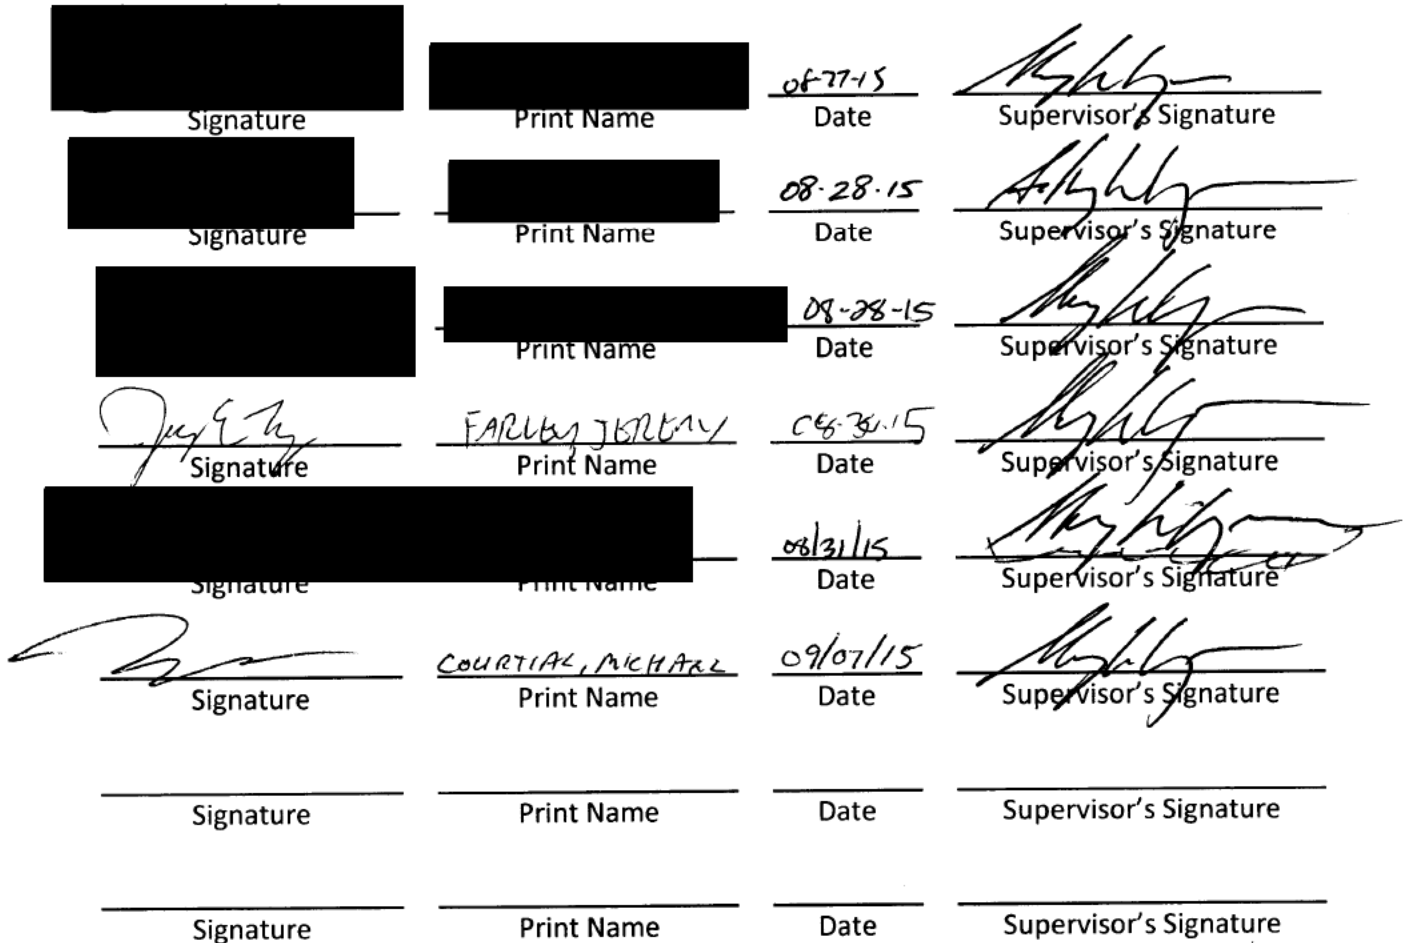 08-27-15
Signature Print Name Date Supervisor's Signature
08-28-15
Signature Print Name Date Supervisor's Signature
08-28-15
Print Name Date Supervisor's Signature
FARLEY, JEREMY
Signature Print Name Date Supervisor's Signature
08/31/15
Signature Print Name Date Supervisor's Signature
COURTIAL, MICHAEL 09/07/15
Signature Print Name Date Supervisor's Signature
Signature Print Name Date Supervisor's Signature
Signature Print Name Date Supervisor's Signature